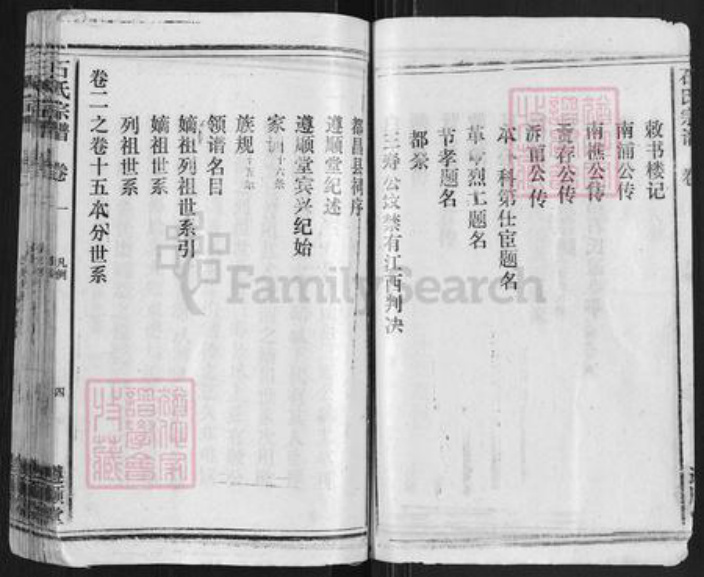 敕书楼记
南浦公传
南樵公传
存公传
浒雨公传
本 科第仕宦题名
革 烈士题名
节孝题名
都奈
三寿公坟禁有江西判决
都昌县祠序
遵顺堂纪述
遵顺堂宾兴纪始
家训十六条
族规十五条
领谱名目
嫡祖列祖世系引
嫡祖世系
列祖世系
卷二之卷十五本分世系
石氏宗谱 卷一 凡例 四 遵顺堂
FamilySearch